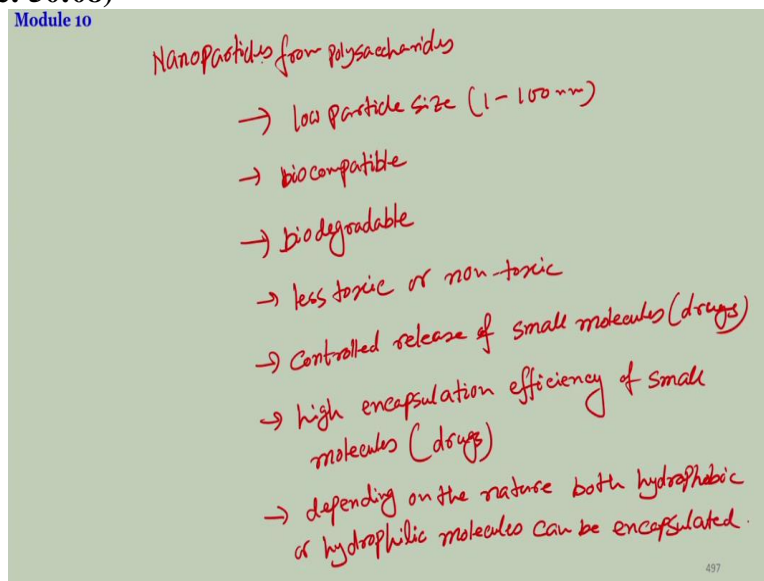 Module 10
Nanoparticles from polysaccharides
→ low particle size (1-100nm)
→ biocompatible
→ biodegradable
→ less toxic or non-toxic
→ Controlled release of small molecules (drugs)
→ high encapsulation efficiency of small
molecules (drugs)
→ depending on the nature both hydrophobic
or hydrophilic molecules can be encapsulated.
497